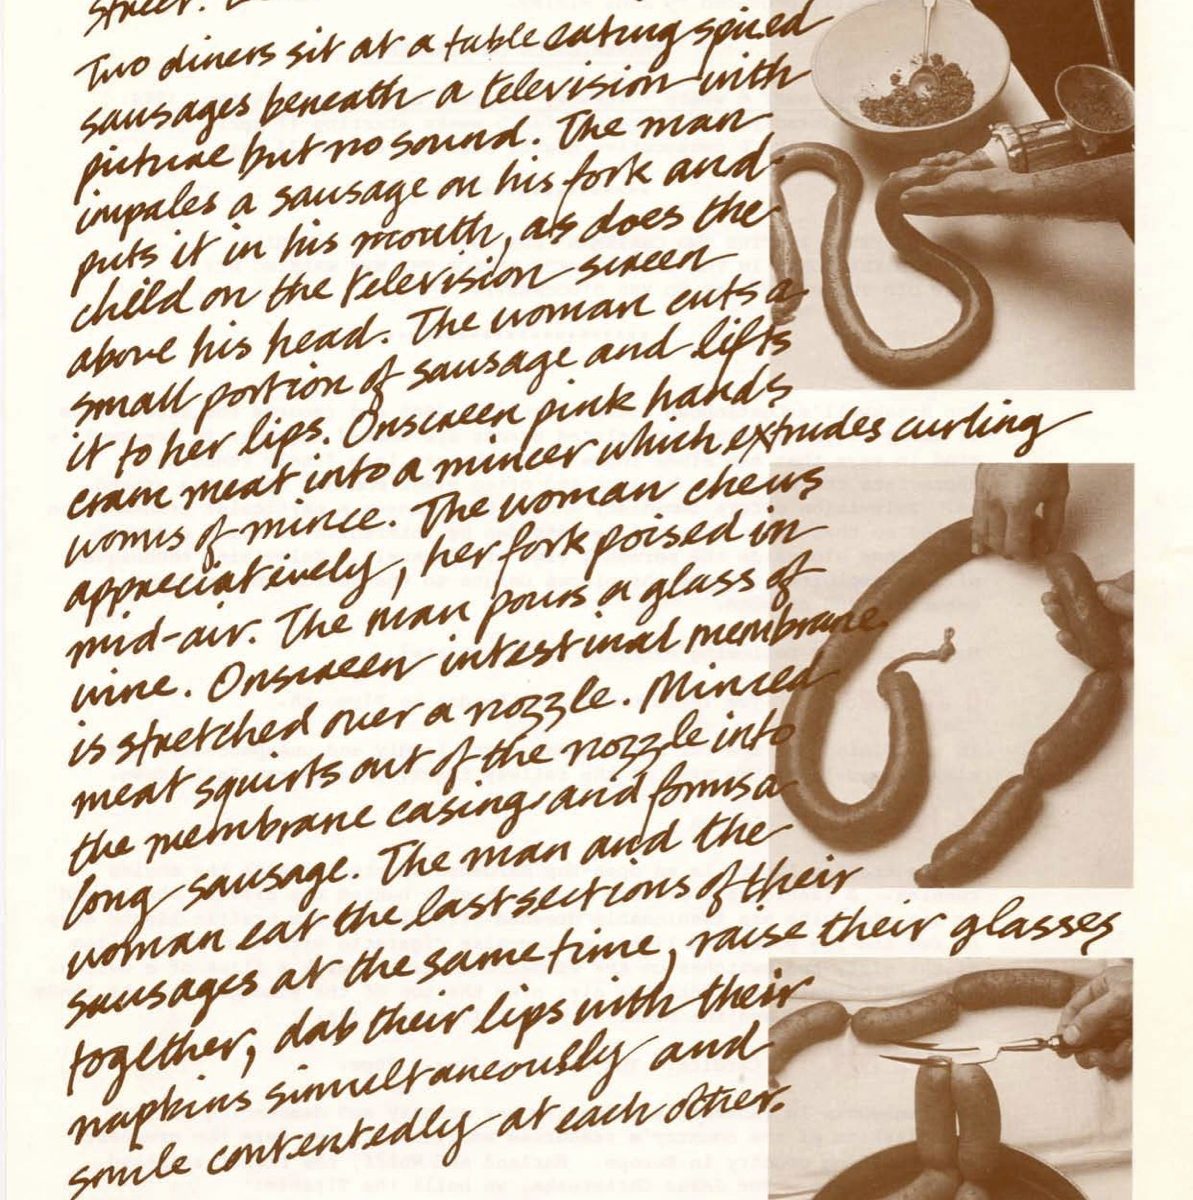 Street.
Two diners sit at a table eating spiced
sausages beneath a television with
picture but no sound. The man
impales a sausage on his fork and
puts it in his mouth, as does the
child on the television screen
above his head. The woman cuts a
small portion of sausage and lifts
it to her lips. Onscreen pink hands
cram meat into a mincer which extrudes curling
worms of mince. The woman chews
appreciatively, her fork poised in
mid-air. The man pours a glass of
wine. Onscreen intestinal membrane
is stretched over a nozzle. Minced
meat squirts out of the nozzle into
the membrane casing and forms a
long sausage. The man and the
woman eat the last sections of their
sausages at the same time, raise their glasses
together, dab their lips with their
napkins simultaneously and
smile contentedly at each other.